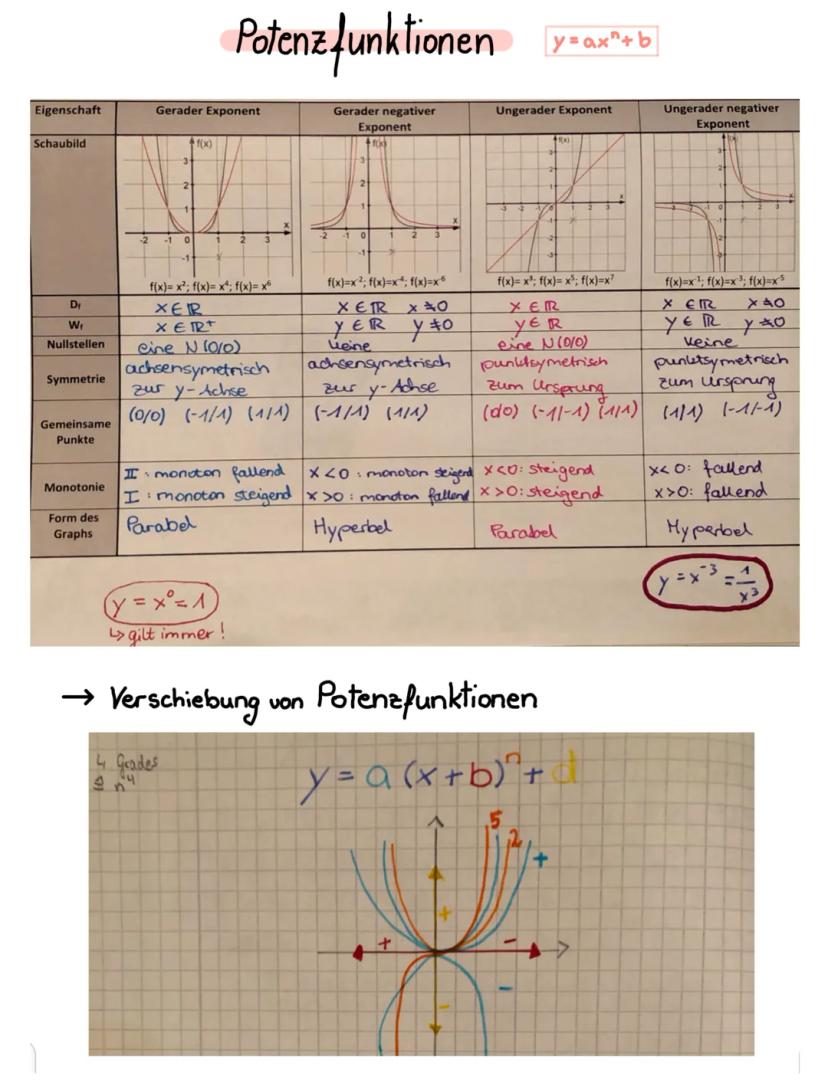 Potenzfunktionen y = axⁿ + b
Eigenschaft Gerader Exponent Gerader negativer Exponent Ungerader Exponent Ungerader negativer Exponent
Schaubild
f(x)= x²; f(x)= x⁴; f(x)= x⁶ f(x)=x⁻²; f(x)=x⁻⁴; f(x)=x⁻⁶ f(x)= x³; f(x)= x⁵; f(x)=x⁷ f(x)=x⁻¹; f(x)=x⁻³; f(x)=x⁻⁵
Df x∈ℝ x∈ℝ x≠0 x∈ℝ x∈ℝ x≠0
Wf x∈ℝ⁺ y∈ℝ y≠0 y∈ℝ y∈ℝ y≠0
Nullstellen eine N(0/0) keine eine N(0/0) keine
Symmetrie achsensymetrisch zur y-Achse achsensymetrisch zur y-Achse punktsymetrisch zum Ursprung punktsymetrisch zum Ursprung
Gemeinsame Punkte (0/0) (-1/1) (1/1) (-1/1) (1/1) (0/0) (-1/-1) (1/1) (1/1) (-1/-1)
Monotonie II: monoton fallend I: monoton steigend x<0: monoton steigend x>0: monoton fallend x<0: steigend x>0: steigend x<0: fallend x>0: fallend
Form des Graphs Parabel Hyperbel Parabel Hyperbel
y = x⁰ = 1
↳ gilt immer!
y = x⁻³ = 1/x³
→ Verschiebung von Potenzfunktionen
4 Grades
≙ n⁴
y = a (x+b)ⁿ + d
5
2
+
+
+ -
-
-